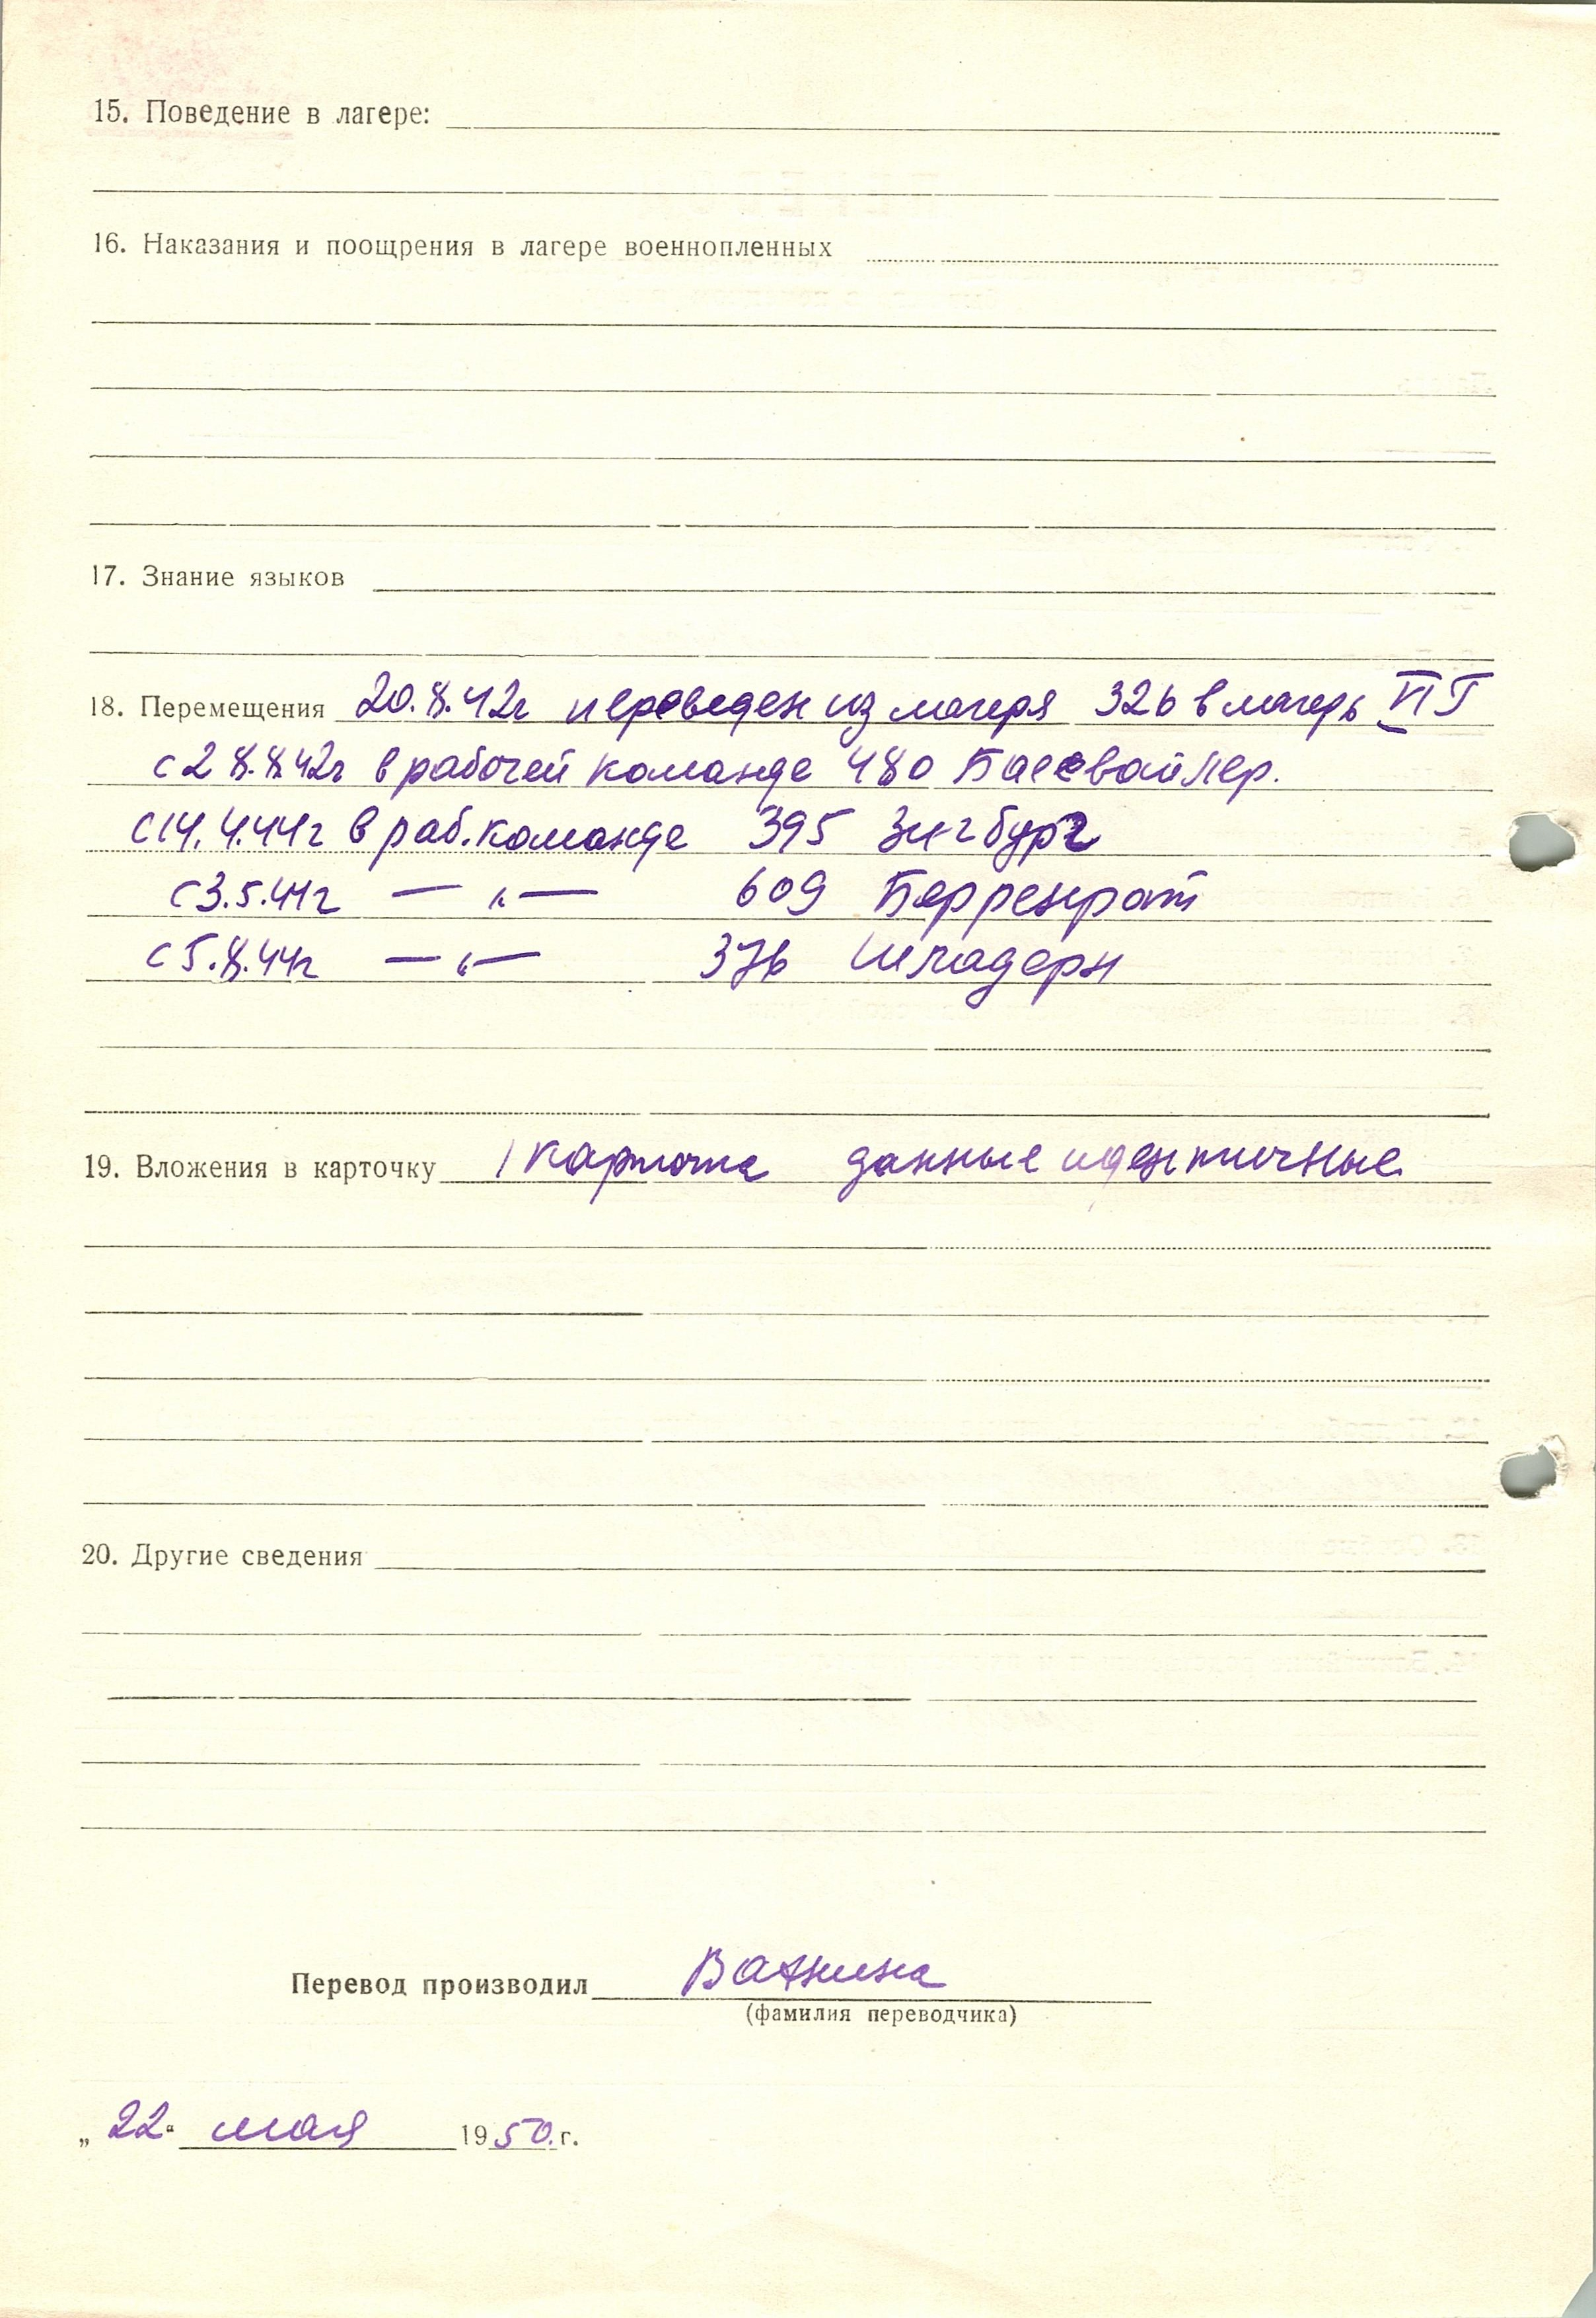 15. Поведение в лагере:
16. Наказания и поощрения в лагере военнопленных
17. Знание языков
18. Перемещения 20.8.42г переведен из лагеря 326 в лагерь VI Г
с 28.8.42г в рабочей команде 480 Баесвайлер.
с 14.4.44г в раб. команде 395 Зигбург
с 3.5.44г — „ — 609 Берренрат
с 5.8.44г — „ — 376
19. Вложения в карточку 1 карточка данные идентичные
20. Другие сведения
Перевод производил
(фамилия переводчика)
„22“ мая 1950.г.